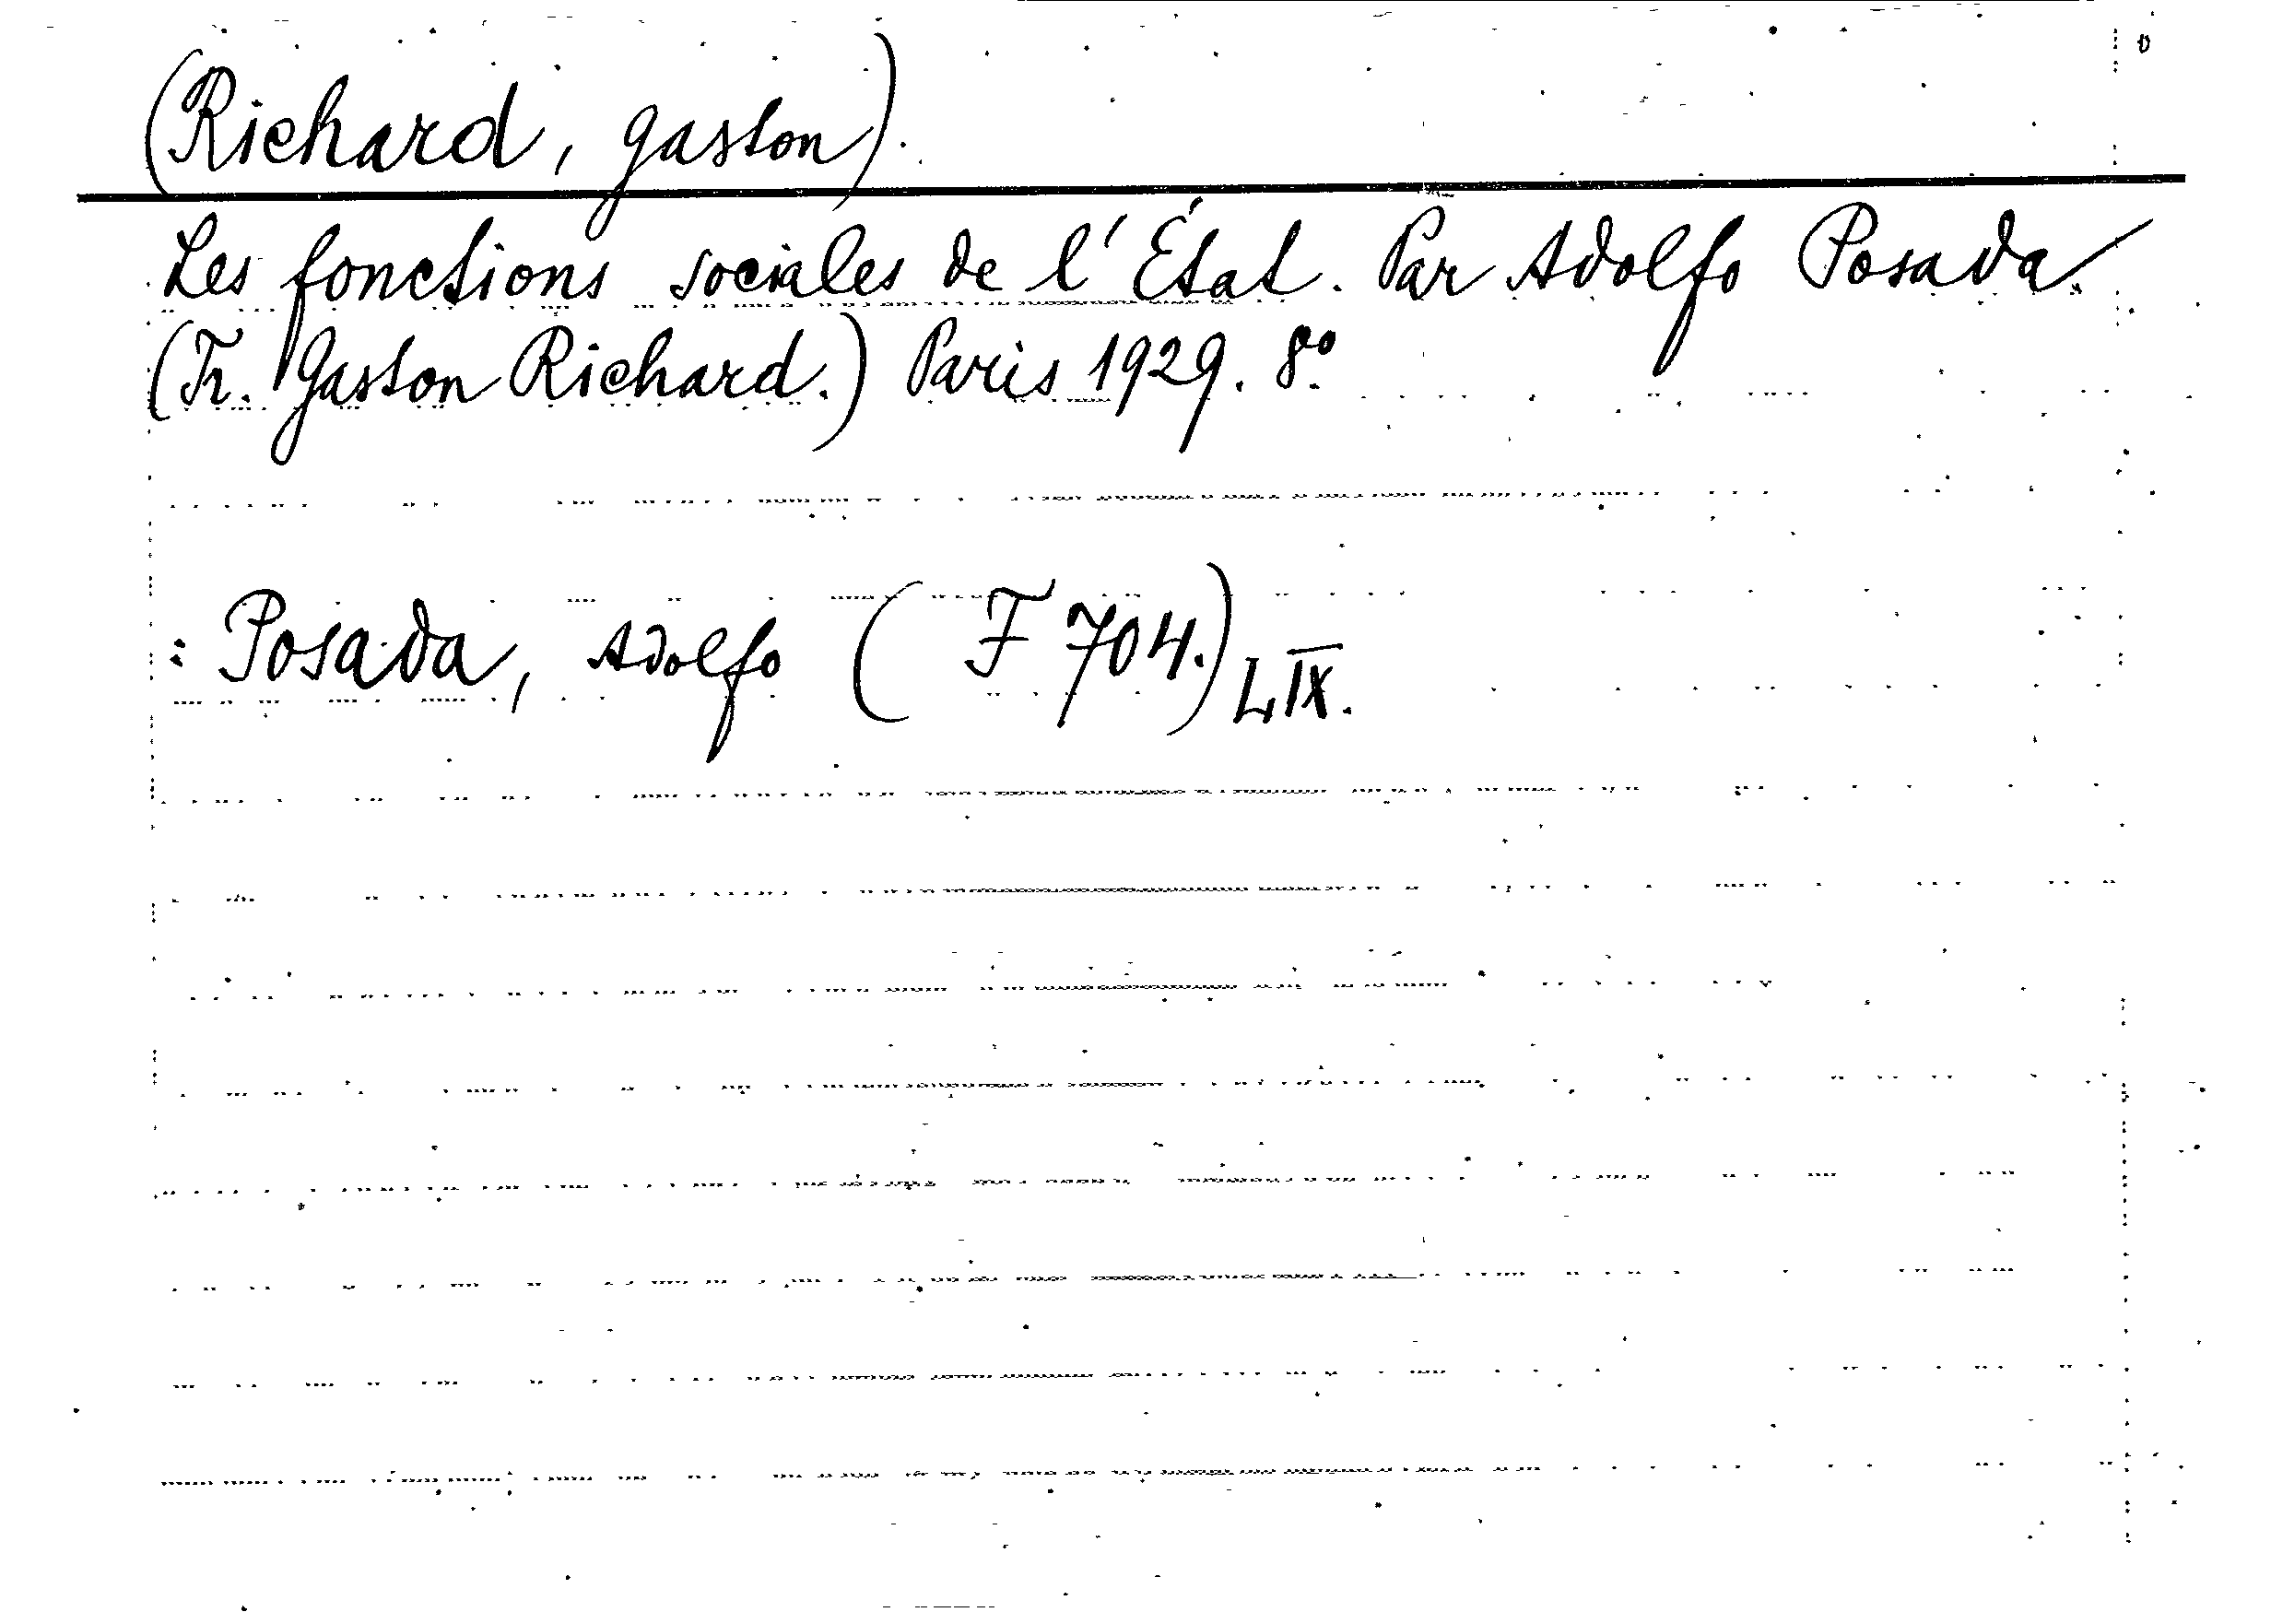 (Richard, Gaston).
Les fonctions sociales de l'État. Par Adolfo Posada.
(Tr. Gaston Richard.) Paris 1929. 8°.
: Posada, Adolfo (F 704.) LIX.